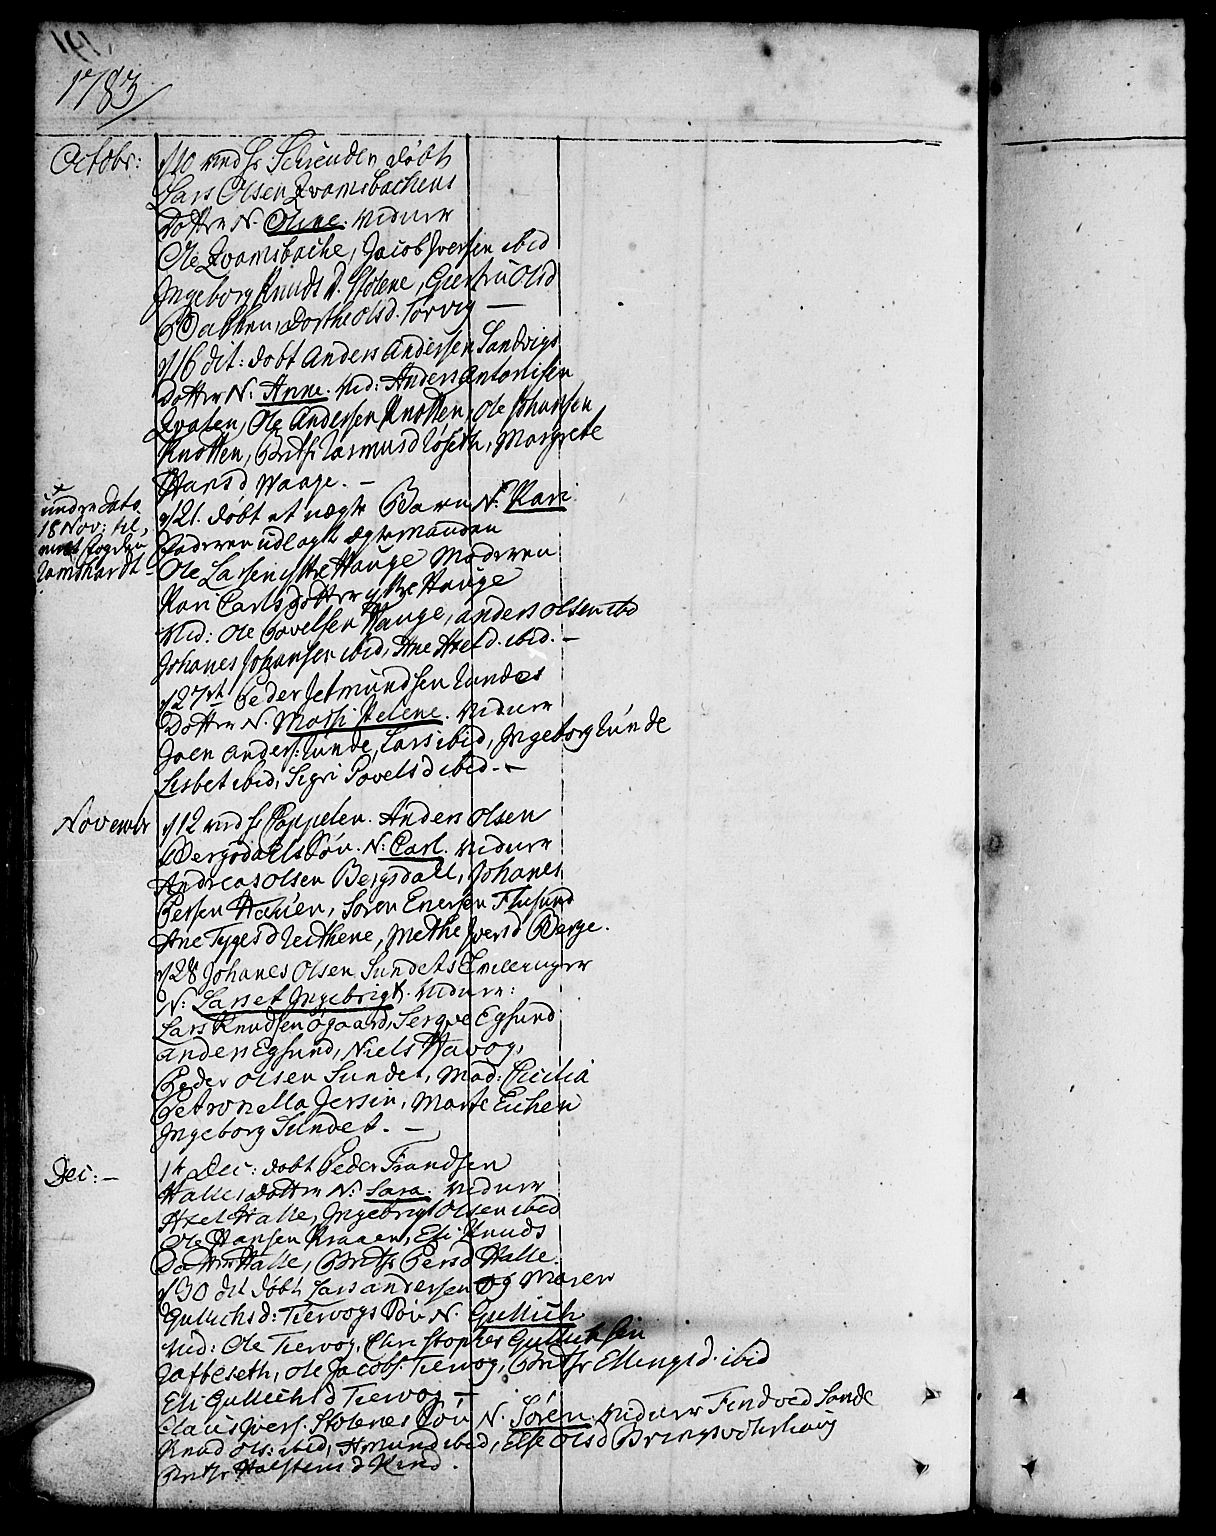 1783
Octobr:
d 10 ved Hr Schieuden døbt
Lars Olsen Qvamsbachens
Dotter N. Oline. Vidner
Ole Qvamsbache, Jacob Iversen ibid
Ingeborg Knuds D. Stolene, Giertru Olsd
Bakken, Dorthe Olsd. Torvig —
d 16 dit: døbt Anders Andersen Sandvigs
Dotter N: Anne. Vid: Anders Antonisen
Ole Andersen Knotten, Ole Johansen
Knotten, Brithe Rasmusd Røseth, Margrete
Hansd Waage. —
under Dato
18 Nov: til
meldt fogden
Lamhardt
d 21. døbt et uægte Barn N. Kari
Faderen udlagt Egtemanden
Ole Larsen yttre Hauge Moderen
Kari Carls Dotter yttre Hauge
Vid: Ole Povelsen Hauge, Anders Olsen ibd
Johanes Johansen ibid, Ane Axeld. ibid. —
d 27 Peder Jetmundsen Lundes
Dotter N. Mossi Helene. Vidner
Joen Anders: Lunde, Lars ibid, Ingeborg Lunde
Lisbet ibid, Sigri Povelsd ibid. —
Novembr
d 12 ved Hr Coppelen. Anders Olsen
Bergsdals Søn. N: Carl. Vidner
Andreas Olsen Bergsdall, Johanes
Persen Hauen, Søren Enersen Flusund
Ane Tygesd Leithene, Methe Iversd Berge.
d 28 Johanes Olsen Sundets Tvillinger
N: Lars et Ingebrigt. Vidner:
Lars Knudsen Øgaard, Serqve Egsund
Anders Egsund, Niels Havog,
Peder Olsen Sundet, Mad: Cicilia
Petronella Jersin, Marte Eichen
Ingeborg Sundet. —
Dec: —
14 Dec: døbt Peder Frandsen
Halle, Dotter N: Sara. Vidner
Axel Halle, Ingebrigt Olsen ibid
Ole Hansen Kraaen, Eli Knuds
Dotter Halle, Brithe Persd Halle.
d 30 dit døbt Lars Andersen og Maren
Gullichsd: Tiervogs Søn N. Gullich
Vid: Ole Tiervog, Christopher Gullichsen
Rafteseth, Ole Jacobs: Tiervog, Brithe Ellingsd. ibid
Eli Gullichsd Tiervog —
Claus Ivers: Stolenes Søn N. Søren. Vidner Find ved Sande
Knud Ols: ibid, Amund ibid, Else Olsd Bringsvorhaug
Brithe Halstensd Rind.